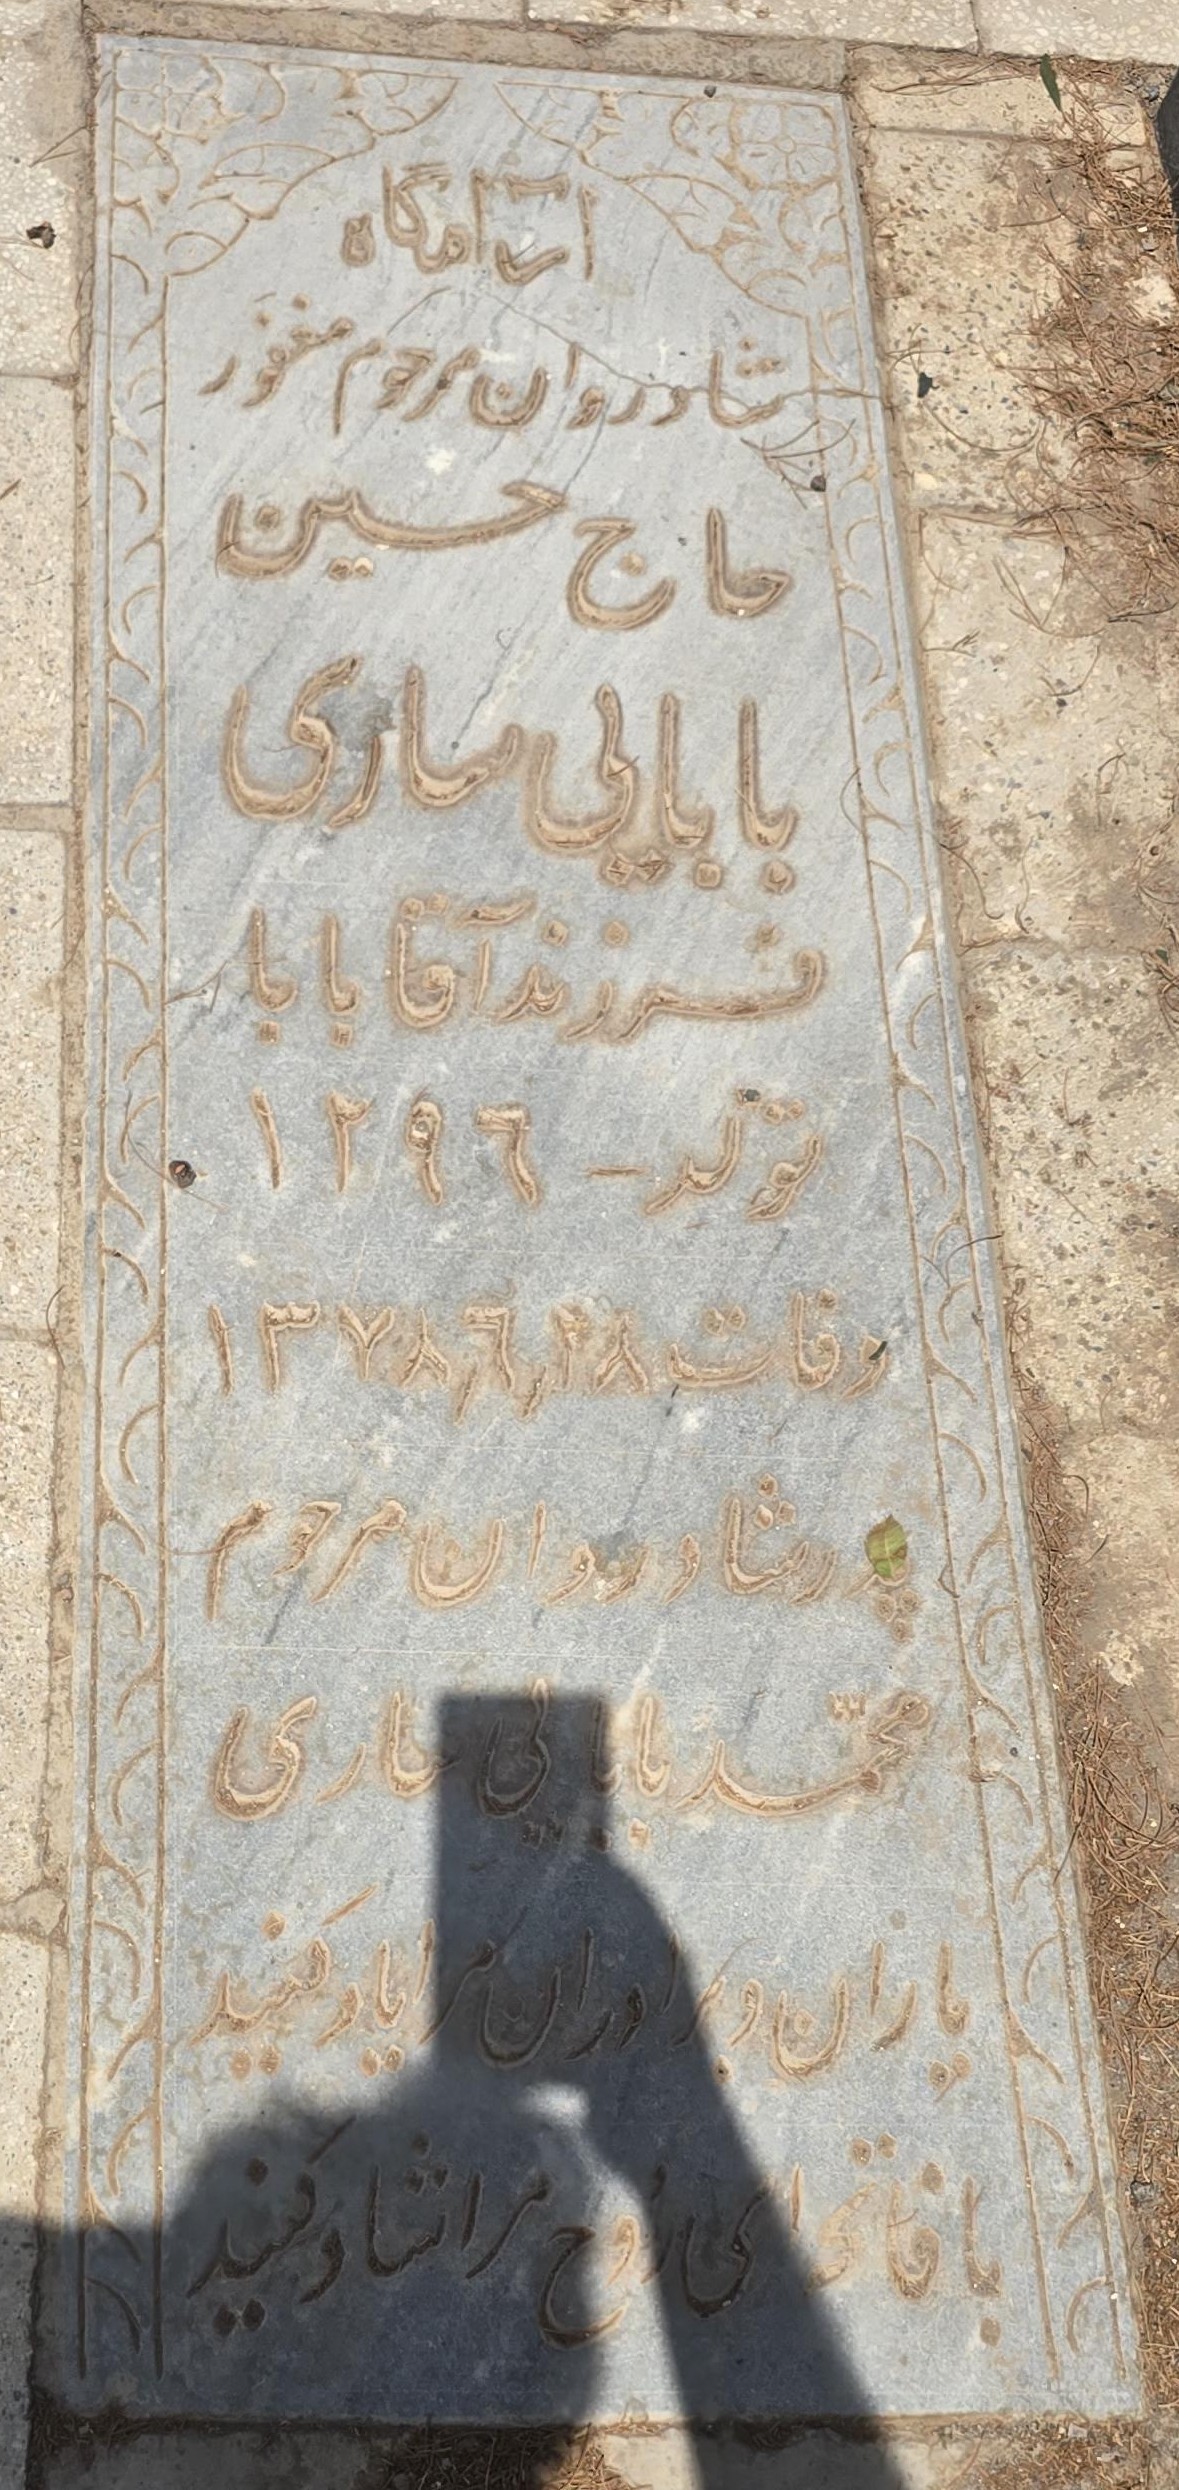 آرامگاه
شادروان مرحوم مغفور
حاج حسین
بابایی ساری
فرزند آقا بابا
تولد - ۱۲۹۶
وفات ۱۳۷۸/۶/۲۸
پدر شادروان مرحوم
محمد بابایی ساری
یاران و برادران مرا یاد کنید
با فاتحه ای روح مرا شاد کنید